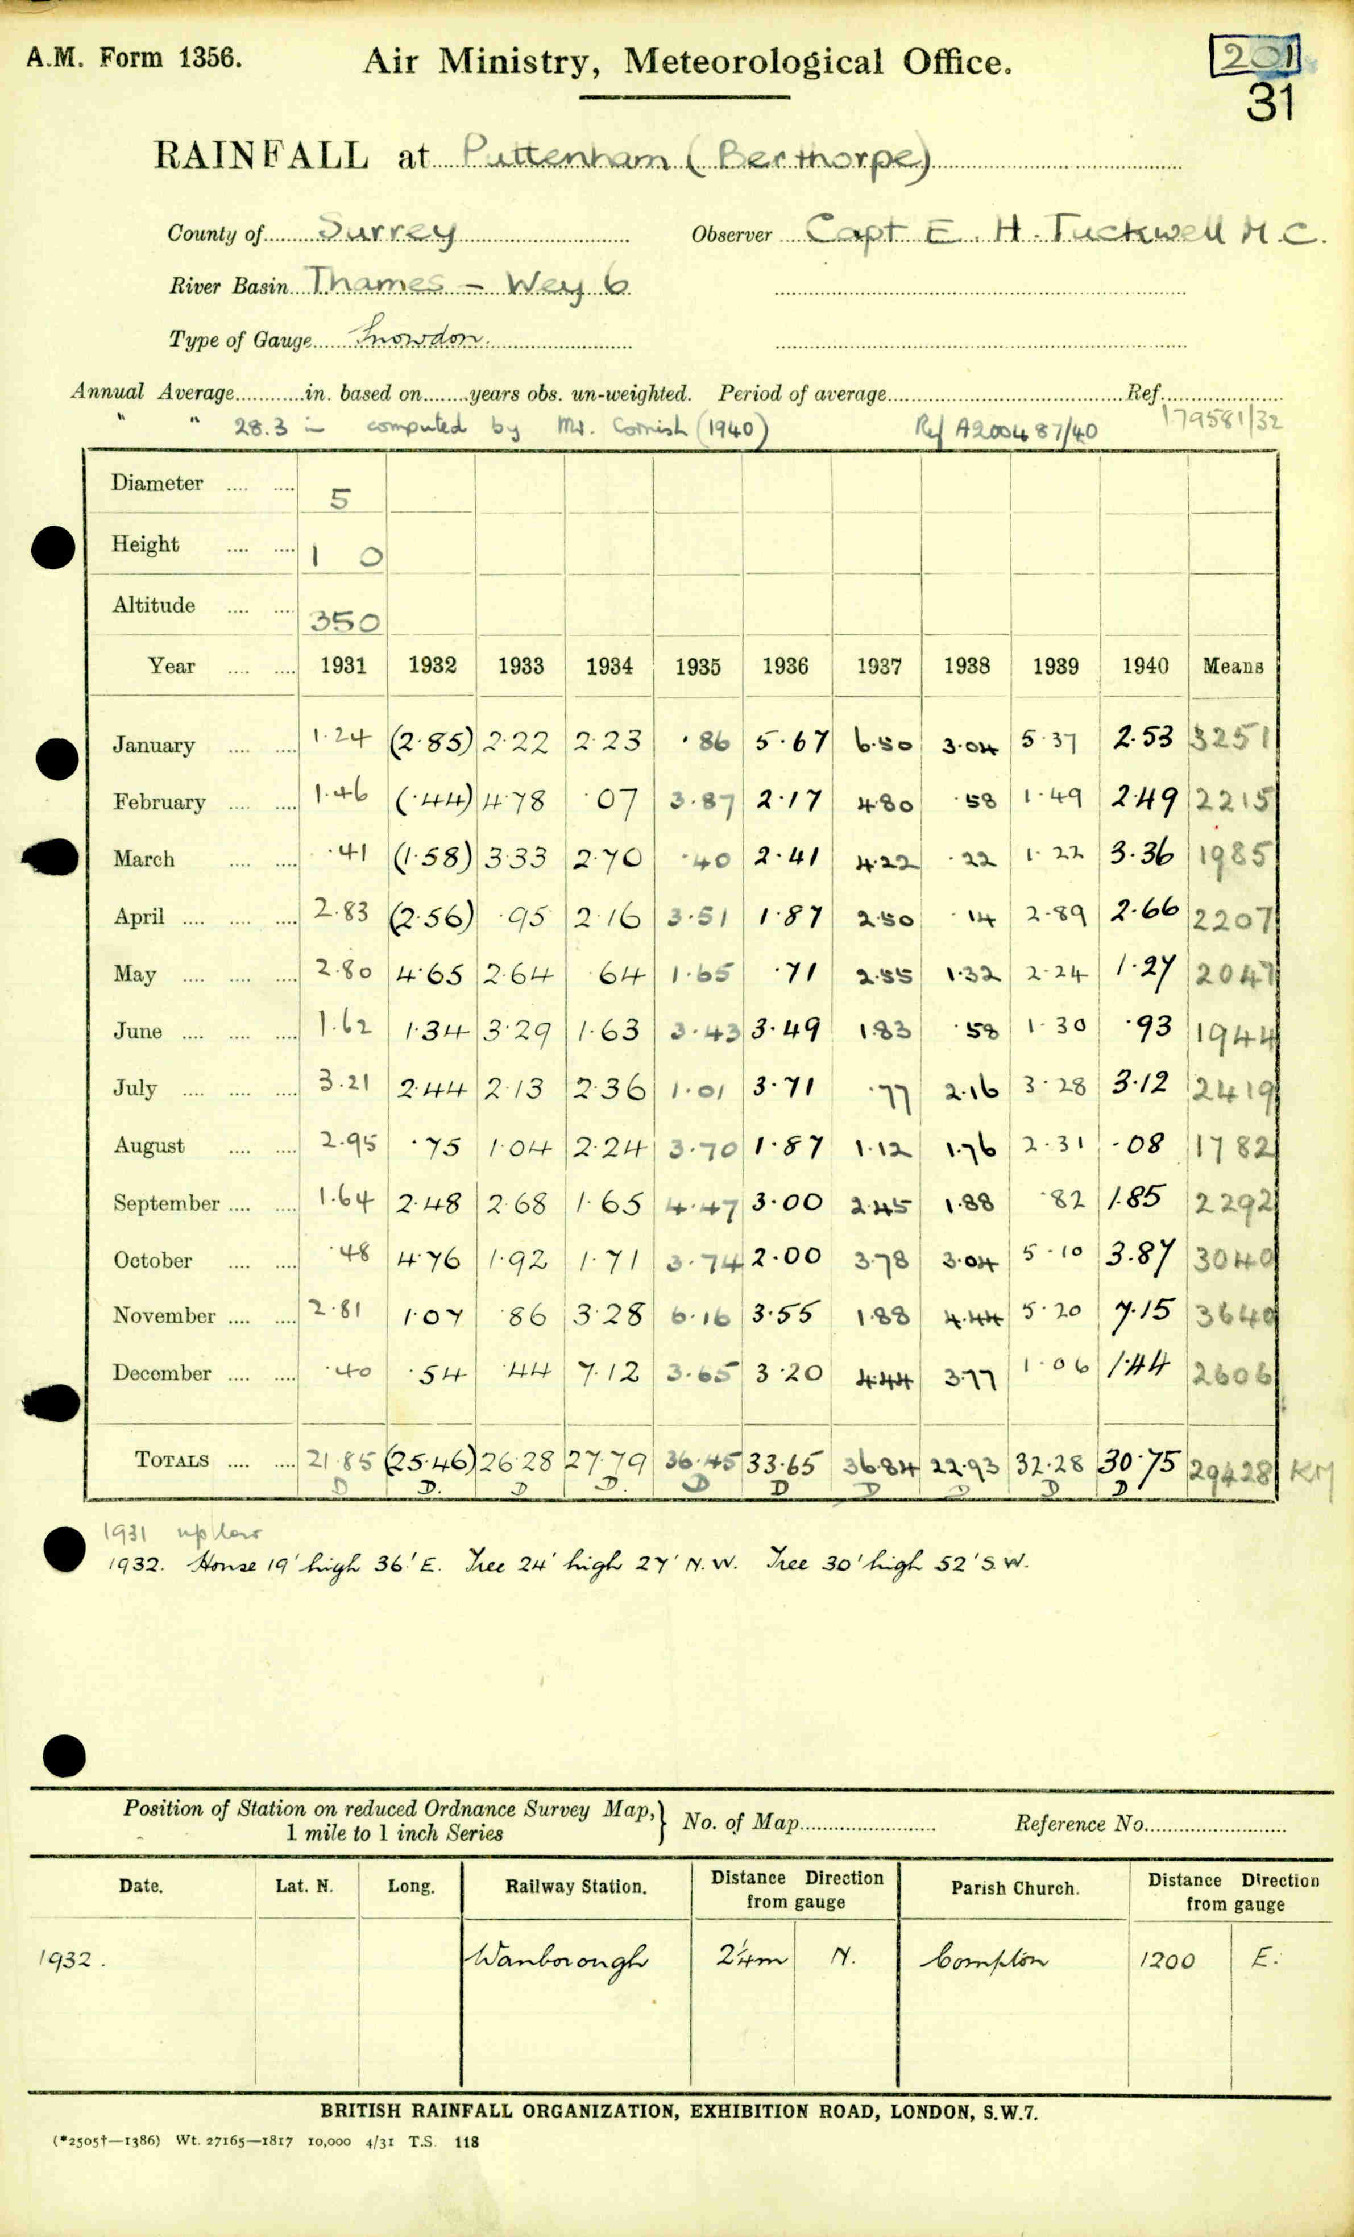 A.M. Form 1356. Air Ministry, Meteorological Office. 201
31
RAINFALL at Puttenham (Berthorpe)
County of Surrey Observer Capt E. H. Tuckwell M.C.
River Basin Thames - Wey 6
Type of Gauge Snowdon.
Annual Average in. based on years obs. un-weighted. Period of average Ref.
" " 28.3 in computed by Mr. Cornish (1940) Ref A200487/40 179581/32
Diameter 5
Height 1 0
Altitude 350
Year 1931 1932 1933 1934 1935 1936 1937 1938 1939 1940 Means
January 1.24 (2.85) 2.22 2.23 .86 5.67 6.50 3.04 5.37 2.53 3251
February 1.46 (.44) 4.78 .07 3.87 2.17 4.80 .58 1.49 2.49 2215
March .41 (1.58) 3.33 2.70 .40 2.41 4.22 .22 1.22 3.36 1985
April 2.83 (2.56) .95 2.16 3.51 1.87 2.50 .14 2.89 2.66 2207
May 2.80 4.65 2.64 .64 1.65 .71 2.55 1.32 2.24 1.27 2047
June 1.62 1.34 3.29 1.63 3.43 3.49 1.83 .58 1.30 .93 1944
July 3.21 2.44 2.13 2.36 1.01 3.71 .77 2.16 3.28 3.12 2419
August 2.95 .75 1.04 2.24 3.70 1.87 1.12 1.76 2.31 .08 1782
September 1.64 2.48 2.68 1.65 4.47 3.00 2.45 1.88 .82 1.85 2292
October .48 4.76 1.92 1.71 3.74 2.00 3.78 3.04 5.10 3.87 3040
November 2.81 1.07 .86 3.28 6.16 3.55 1.88 4.44 5.20 7.15 3640
December .40 .54 .44 7.12 3.65 3.20 4.44 3.77 1.06 1.44 2606
TOTALS 21.85 (25.46) 26.28 27.79 36.45 33.65 36.84 22.93 32.28 30.75 29428 KM
D D. D D. D D D D D D
1931
1932. House 19' high 36' E. Tree 24' high 27' N.W. Tree 30' high 52' S.W.
Position of Station on reduced Ordnance Survey Map, } No. of Map Reference No.
1 mile to 1 inch Series
Date. Lat. N. Long. Railway Station. Distance Direction from gauge Parish Church. Distance Direction from gauge
1932. Wanborough 2¼m N. Compton 1200 E.
BRITISH RAINFALL ORGANIZATION, EXHIBITION ROAD, LONDON, S.W.7.
(*2505†—1386) Wt. 27165—1817 10,000 4/31 T.S. 118